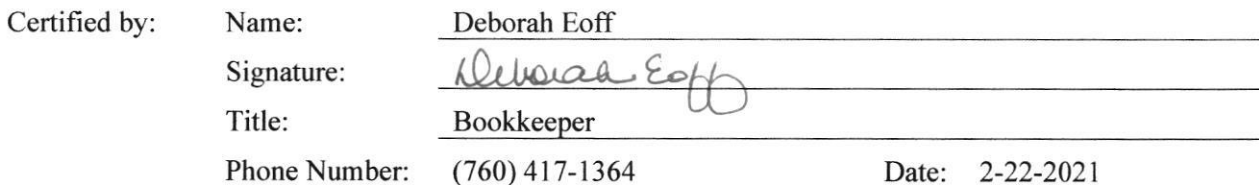 Certified by: Name: Deborah Eoff
Signature: Deborah Eoff
Title: Bookkeeper
Phone Number: (760) 417-1364 Date: 2-22-2021